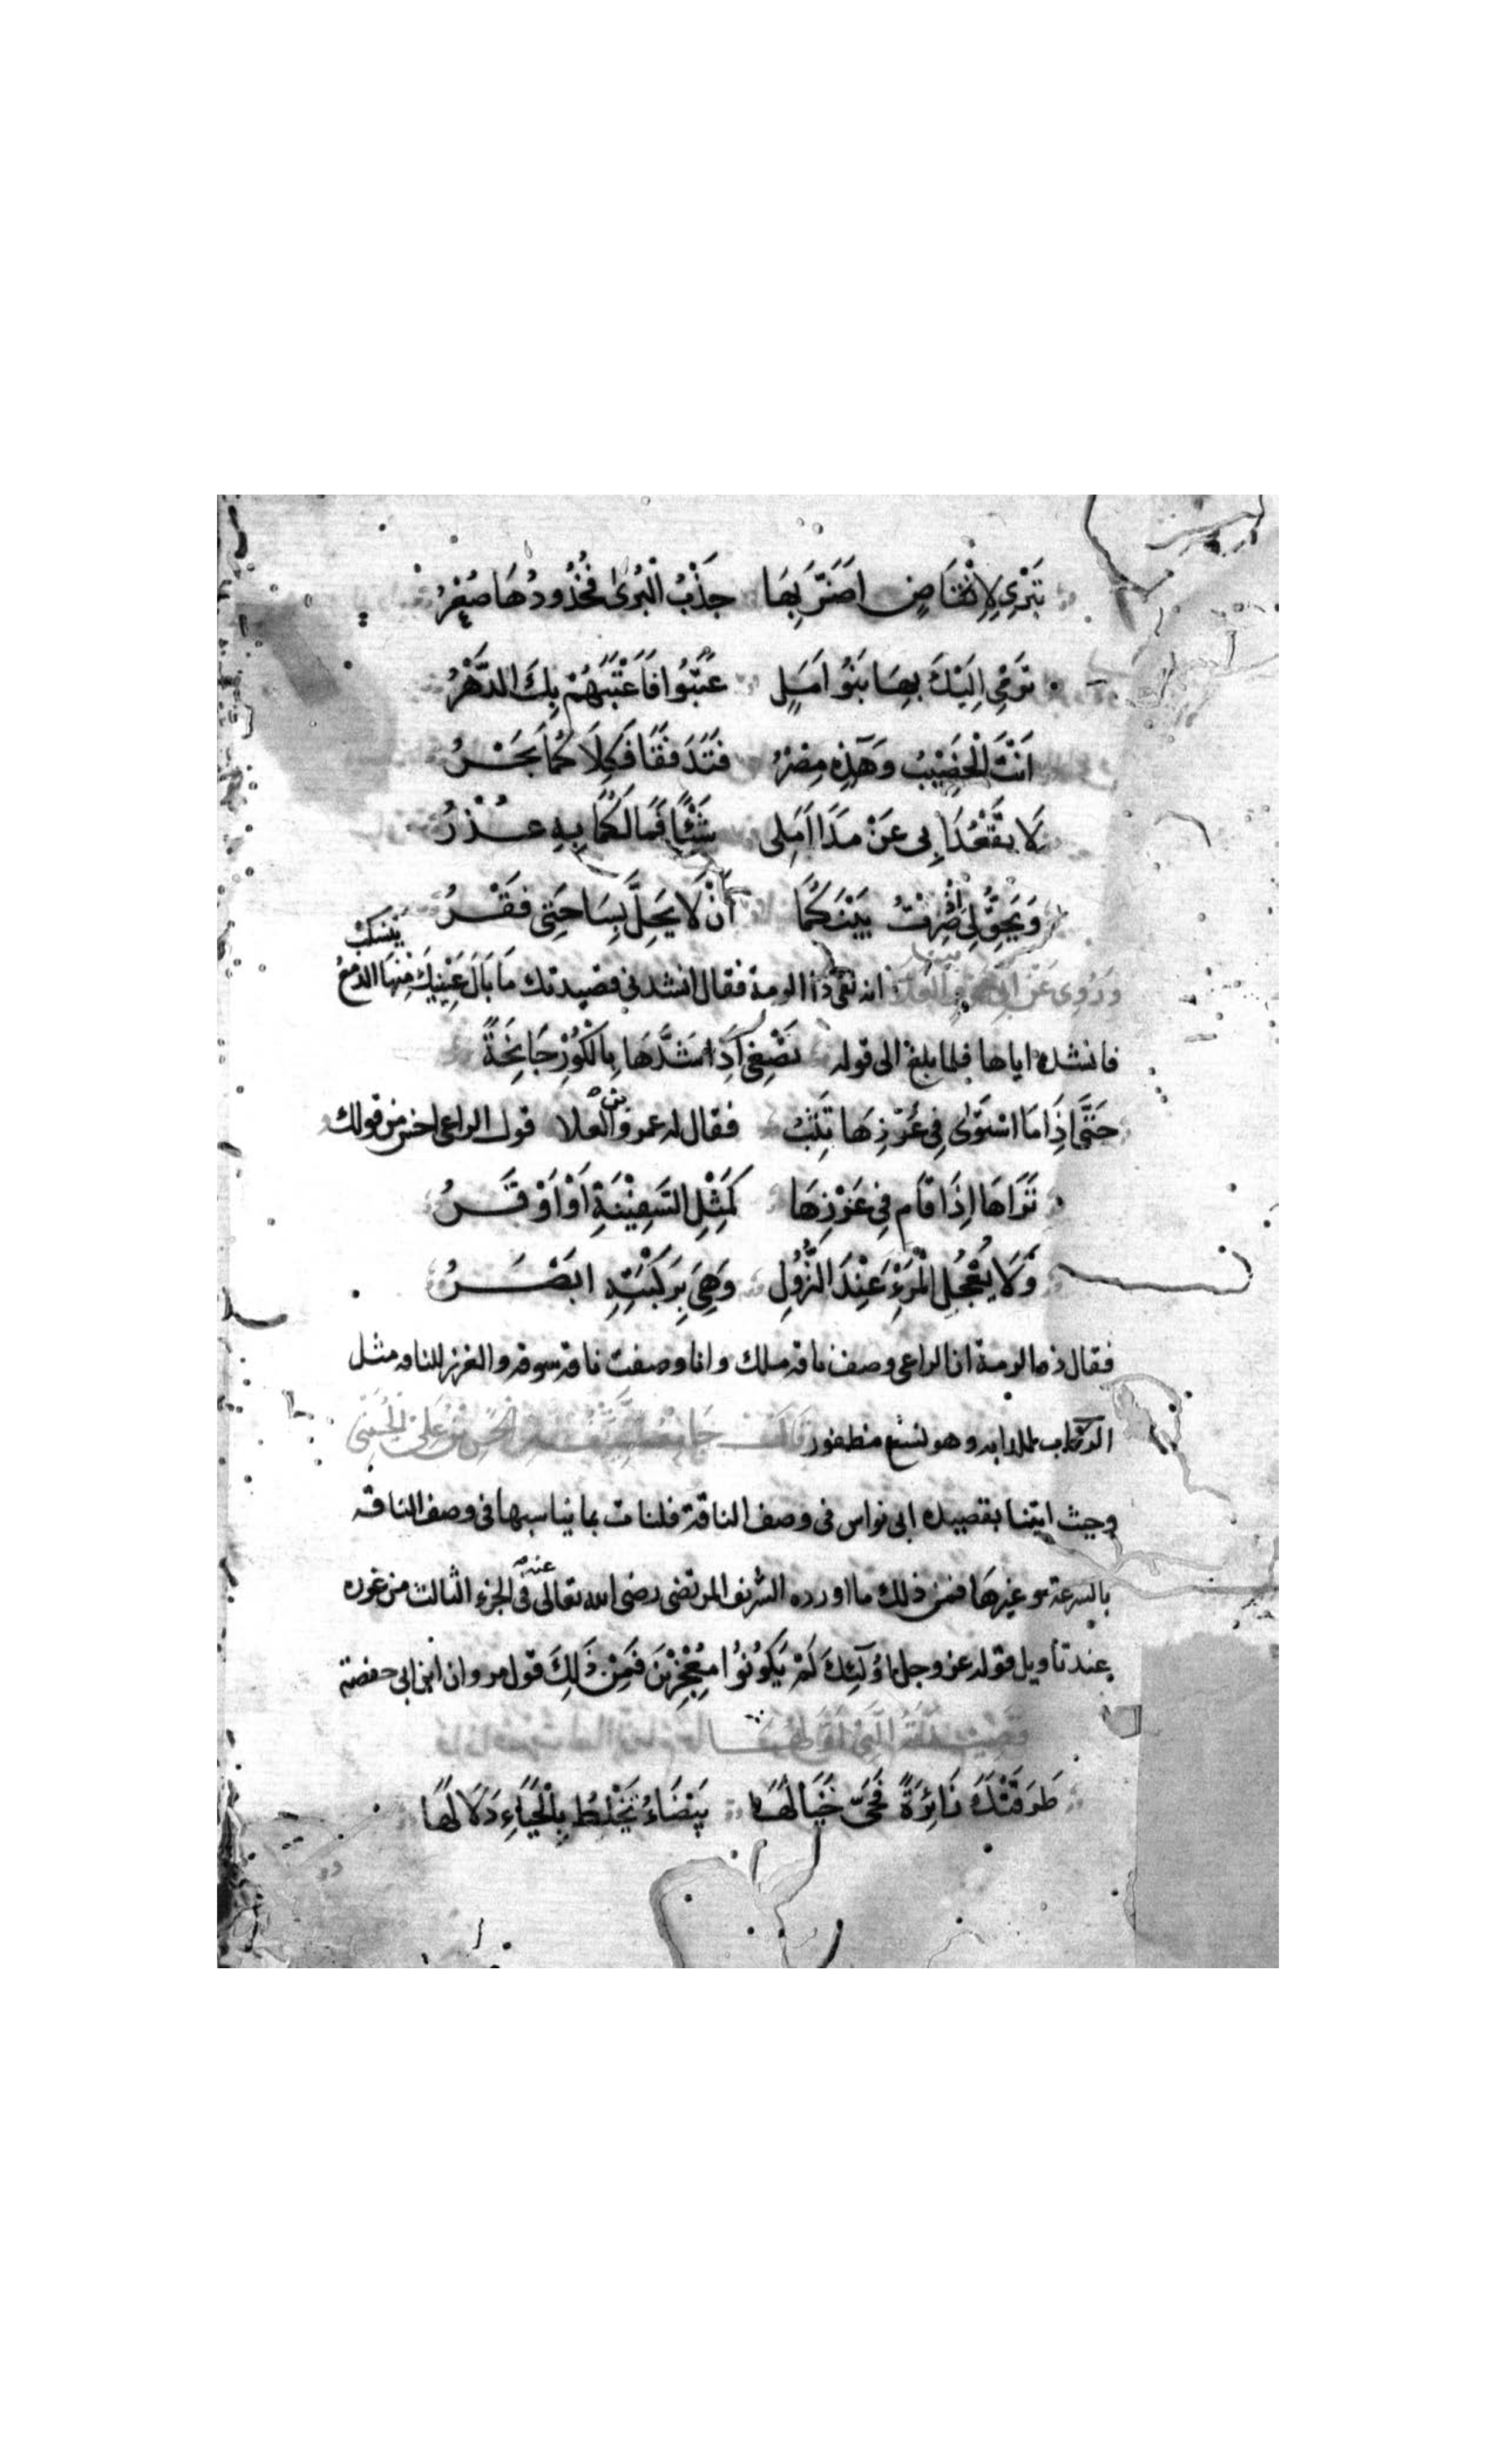 تَبْرِي لِانْقَاضٍ اَضَرَّ بِهَا جَذْبُ الْبُرَىٰ فَخُدُودُهَا صُعْرُ
تَرْمِي اِلَيْكَ بِهَا بَنُوا اَمَلٍ عَتَبُوا فَاَعْتَبَهُمْ بِكَ الدَّهْرُ
اَنْتَ الْخَصِيْبُ وَهَذِهِ مِصْرُ فَتَدَفَّقَا فَكِلَاكُمَا بَحْرُ
لَا تَقْعُدَا بِي عَنْ مَدَا اَمَلِي شَيْئًا فَمَا لَكُمَا بِهِ عُذْرُ
وَيَحِقُّ لِي اذ صِرْتُ بَيْنَكُمَا اَنْ لَا يَحِلَّ بِسَاحَتِي فَقْرُ
وَرُوِيَ عَنْ ابي عمرو بن العلاء انه لقى ذا الرمة فقال انشدني قصيدتك مَا بَالَ عَيْنِيكَ مِنْهَا الدمعُ يَنسكبُ
فانشده اياها فلما بلغ الى قوله تَصْغِى اَذِا شَدَّهَا بِالْكُوْرِ جَانِحَةً
حَتَّى اِذَا مَا اسْتَوَىٰ فِي غَرْزِهَا تَثِبُ فقال له عمرو بن العلا قول الراعى احسن من قولك
تَرَاهَا اِذَا قَامَ فِي غَرْزِهَا كَمِثْلِ السَفِيْنَةِ اَوْ اَوْقَرُ
وَلَا يُعْجِلِ الْمَرْءَ عِنْدَ النُّزُولِ وَهِيَ بِرَكْبَتِهِ ابَصْرُ
فقال ذو الرمة ان الراعى وصف ناقه ملك وانا وصفت ناقه سوقه والغرز للناقه مثل
الركاب للدابه وهو نسع مظفور قَالَ جَامِعُه بن الحسن بن علي الحسيني
وحيث اتينا بقصيده ابى نواس فى وصف الناقة فلنات بما يناسبها فى وصف الناقه
بالسرعة وغيرهَا فمن ذلك ما اورده الشريف المرتضى رضى الله تعالى عنه فى الجزء الثالث من غرره
عند تأويل قوله عز وجل اُولَٓئِكَ لَمْ يَكُونُوا مُعْجِزِيْنَ فَمِنْ ذَلِكَ قول مروان ابن ابى حفصة
طَرَقَتْكَ زَائِرَةً فَحَىِّ خَيَالَهَا بَيْضَاءُ تَخْلِطُ بِالْحَيَاءِ دَلَالَهَا